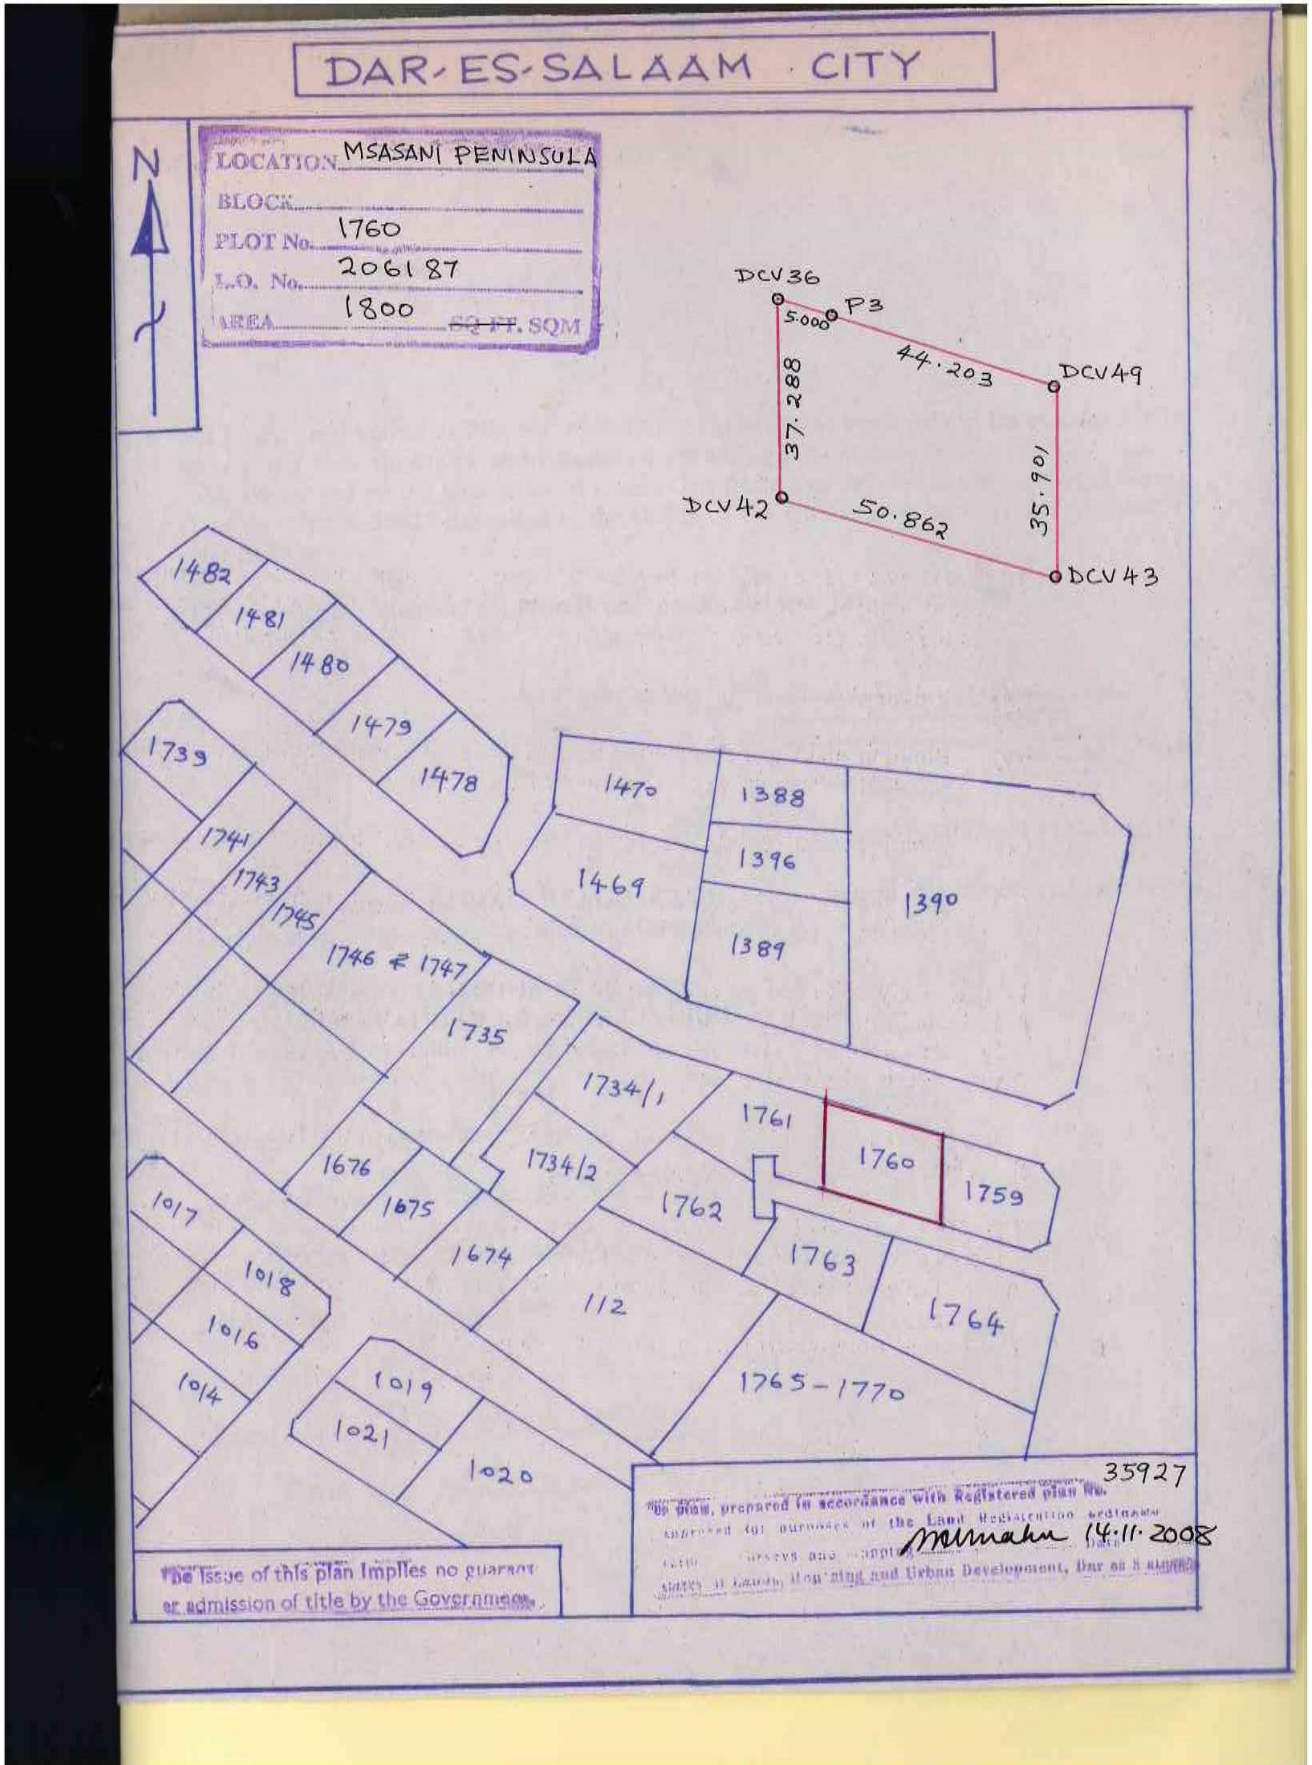 DAR-ES-SALAAM CITY
N
LOCATION MSASANI PENINSULA
BLOCK
PLOT No. 1760
L.O. No. 206187
AREA 1800 SQ FT. SQM
DCV36
P3
5.000
44.203
DCV49
37.288
35.901
DCV42
50.862
DCV43
1482
1481
1480
1479
1478
1739
1741
1743
1745
1746 & 1747
1735
1470
1388
1396
1469
1389
1390
1734/1
1734/2
1761
1760
1759
1762
1763
1764
1676
1675
1674
112
1765-1770
1017
1018
1016
1014
1019
1021
1020
35927
plan, prepared in accordance with Registered plan No.
purposes of the Land Registration
14.11.2008
Surveys and
Lands, Housing and Urban Development, Dar es
The Issue of this plan Implies no
or admission of title by the Government.